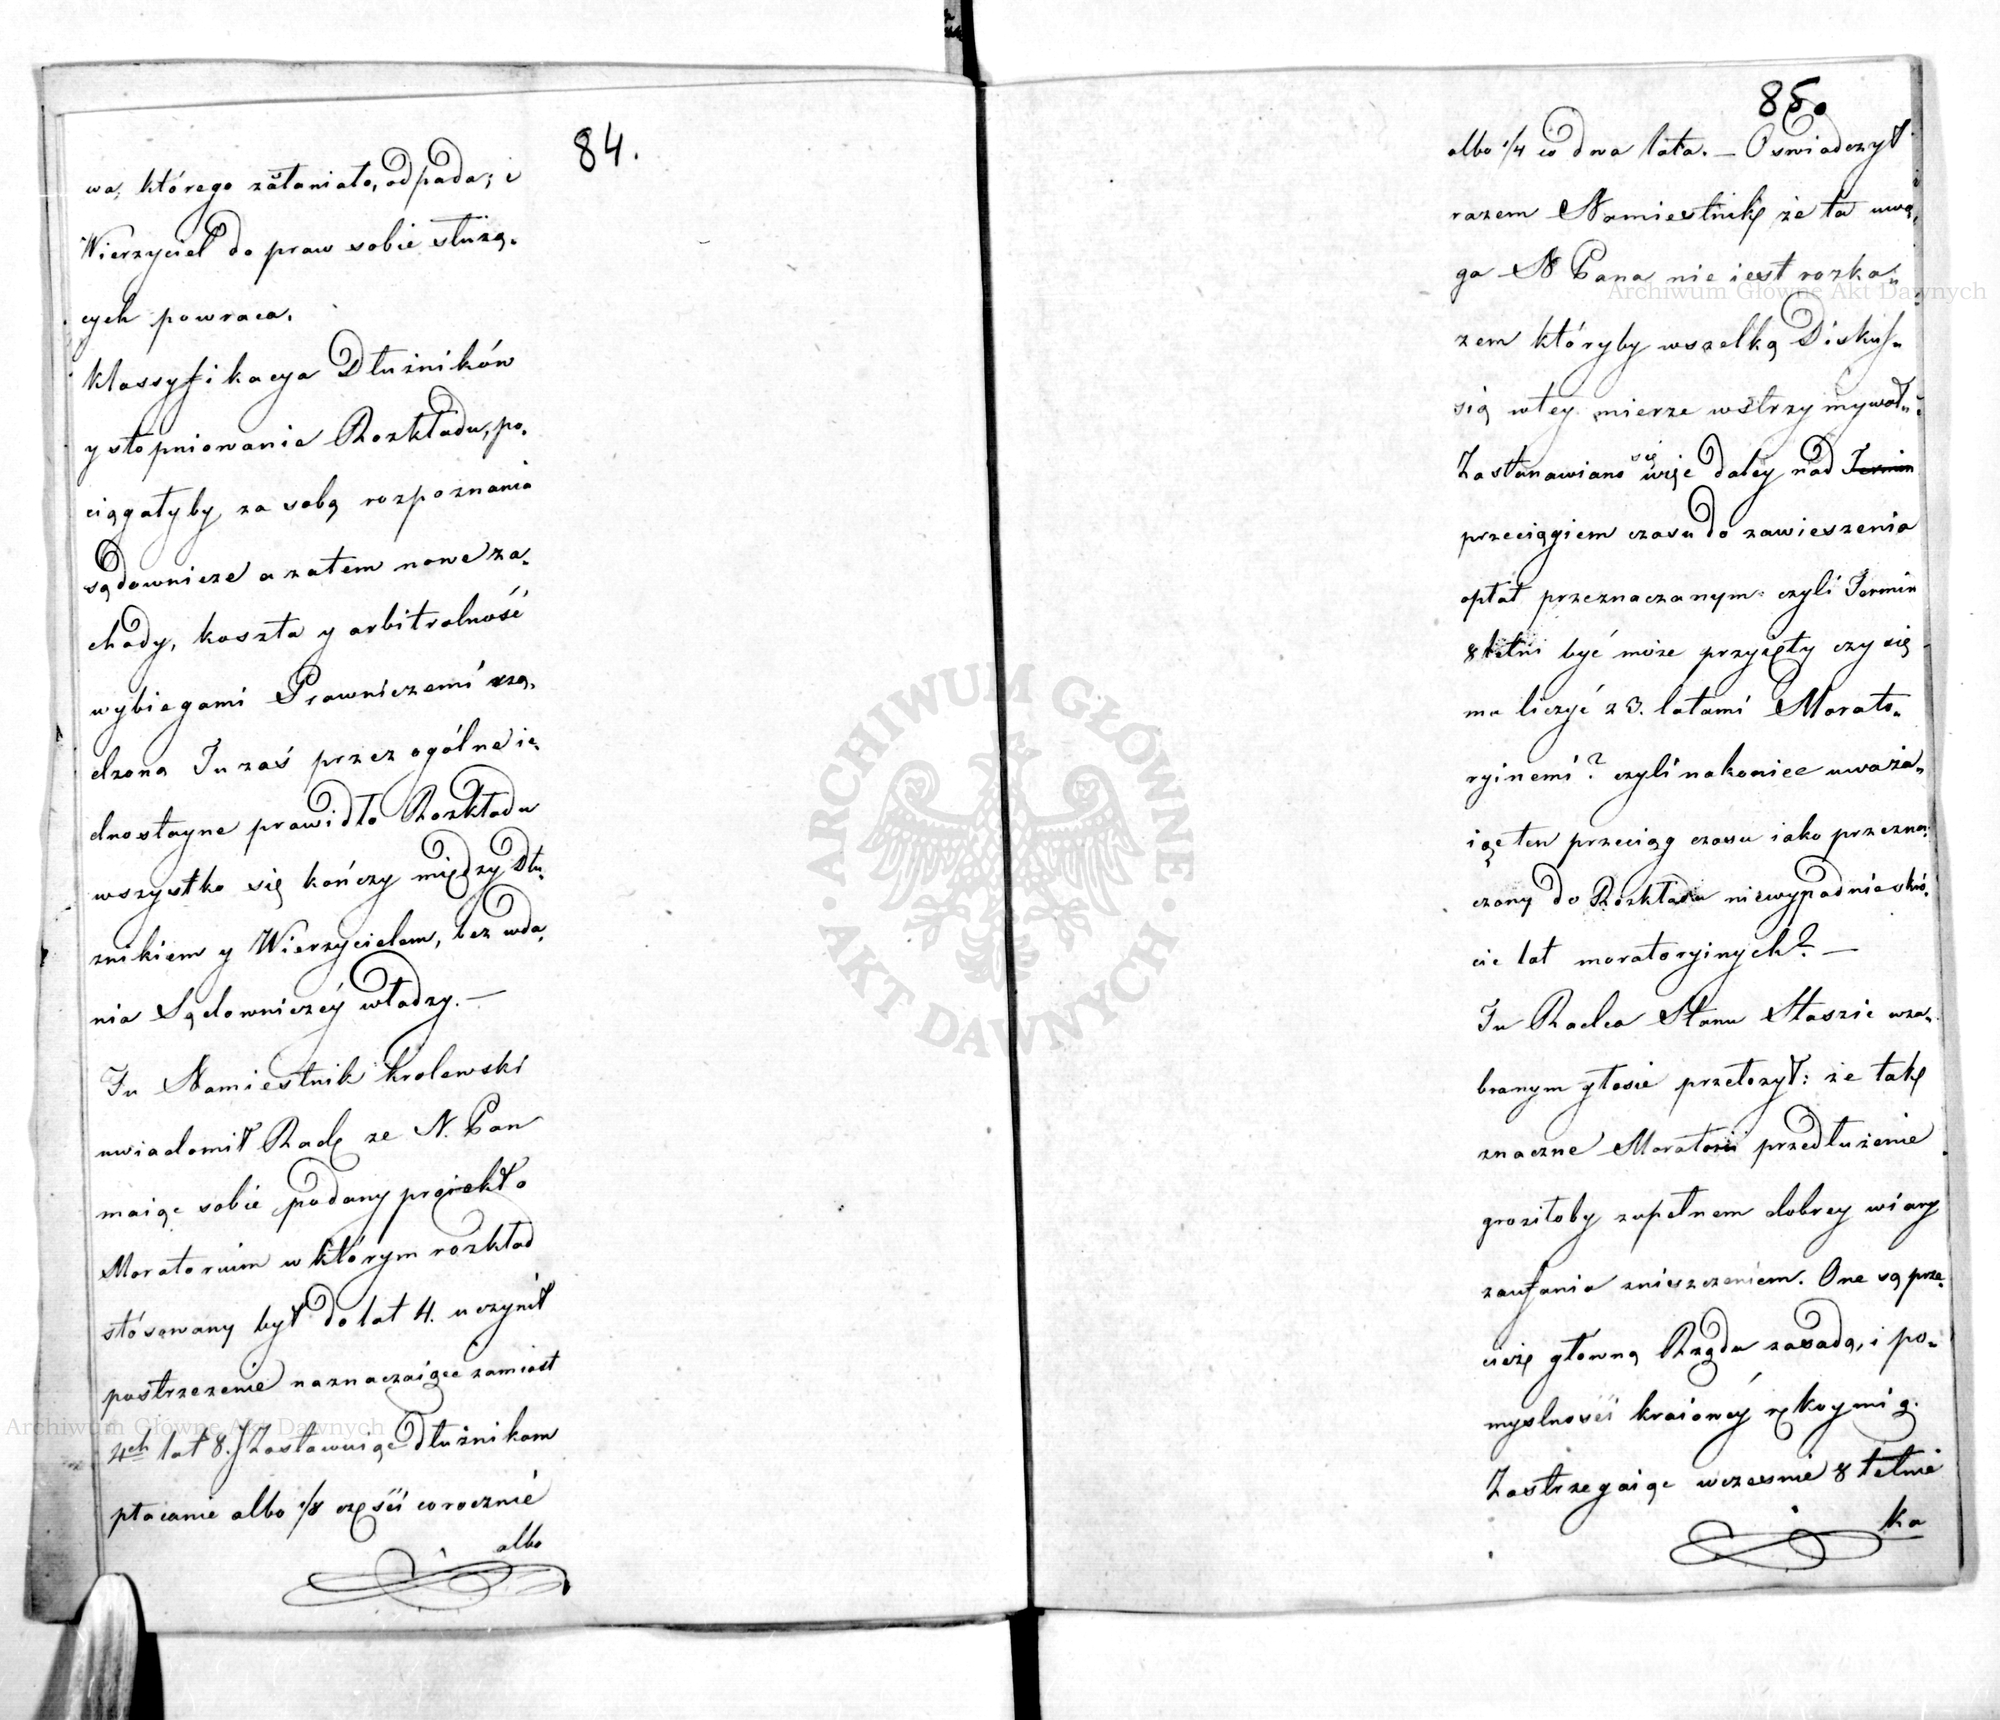 84.
wa, którego zasłaniało, odpada; i
Wierzyciel do praw sobie służą-
cych powraca.
Klassyfikacya Dłużników
y stopniowanie Rozkładu, po-
ciągałyby za sobą rozpoznania
sądownicze a zatem nowe za-
chody, koszta y arbitralność
wybiegami Prawniczemi rzą-
dzona Tu zaś przez ogólne ie-
dnostayne prawidło Rozkładu
wszystko się kończy między Dłu-
żnikiem y Wierzycielem, bez wda-
nia Sądowniczéy władzy. —
Tu Namiestnik Krolewski
uwiadomił Radę ze N. Pan
maiąc sobie podany proiekt
Moratorium w którym rozkład
stósowany był do lat 4. uczynił
postrzezenie naznaczaiące zamiast
4ch lat 8. Zostawuiąc dłużnikom
płacanie albo 1/8 części corocznié
albo
85.
albo 1/4 co dwa lata. — Oswiadczył
razem Namiestnik że ta uwa-
ga N Pana nie iest rozka-
zem któryby wszelką Diskus-
sią w tey mierze wstrzymywał.
Zastanawiano się więc daley nad Termin
przeciągiem czasu do zawieszenia
opłat przeznaczanym: czyli Termin
8 letni być może przyięty czy się
ma liczyć z 3. latami Morato-
ryinemi? czyli nakoniec uważa-
iąc ten przeciąg czasu iako przezna-
czony do Rozkładu niewypadnie skró-
cić lat moratoryinych? —
Tu Radca Stanu Staszic w za-
branym głosie przełozył: że tak
znaczne Moratorii przedłużenie
groziłoby zupełnem dobrey wiary
zaufania zniszczeniem. One są prze-
cież główną Rządu zasadą, i po-
myslności kraiowéy rękoymią.
Zastrzegaiąc wczesnie 8 letnie
ka
Archiwum Główne Akt Dawnych
Archiwum Główne Akt Dawnych
ARCHIWUM GŁÓWNE
AKT DAWNYCH